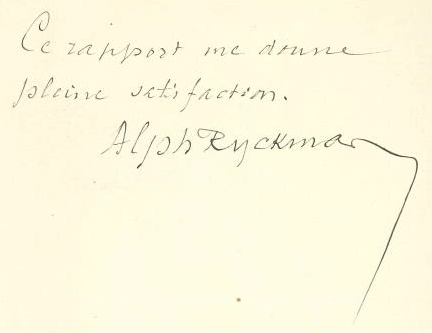 Ce rapport me donne
pleine satisfaction.
Alph Ryckman